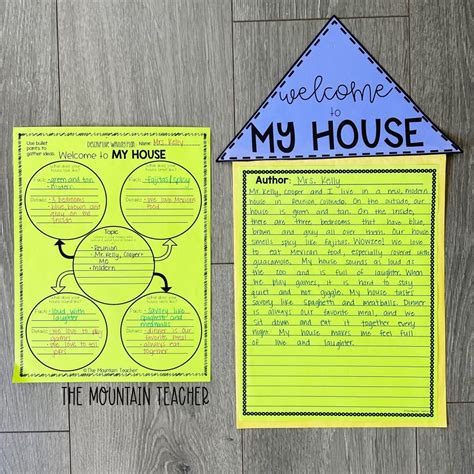 Use bullet
points to
gather ideas.
DESCRIPTIVE WRITING PLAN
Name: Mrs. Kelly
Welcome to MY HOUSE
Fact: green and tan
Details:
3 bedrooms
blue, brown, and
gray on the
Fact: fajitas/spicy
Details:
we love Mexican
food
Topic
Reunion
Mr. Kelly, Cooper+
Me
Modern
Fact: loud with
laughter
Details:
we love to play
games
we love to tell
jokes
Fact: savory like
spaghetti and
meatballs
Details:
dinner is our
favorite meal
always eat
together
©The Mountain Teacher
THE MOUNTAIN TEACHER
welcome
to
MY HOUSE
Author: Mrs. Kelly
Mr. Kelly, Cooper and I live in a new, modern
house in Reunion, Colorado. On the outside, our
house is green and tan. On the inside,
there are three bedrooms that have blue,
brown and gray all over them. Our house
smells spicy like fajitas. Wowzee! We love
to eat Mexican food, especially covered with
guacamole. My house sounds as loud as
the zoo and is full of laughter. When
we play games, it is hard to stay
quiet and not giggle. My house tastes
savory like spaghetti and meatballs. Dinner
is always our favorite meal, and we
sit down and eat it together every
night. My house makes me feel full
of love and laughter.